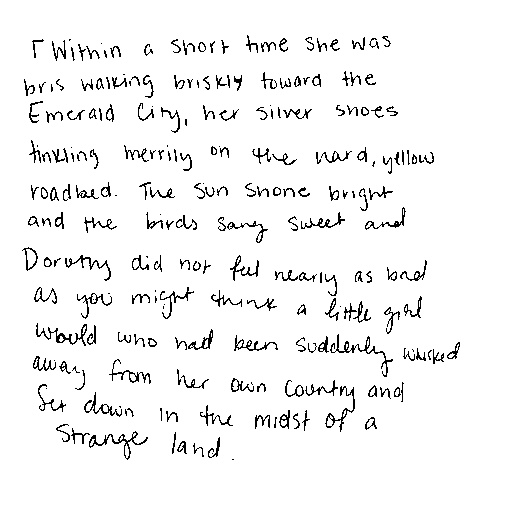 Within a short time she was
bris walking briskly toward the
Emerald City, her silver shoes
tinkling merrily on the hard, yellow
roadbed. The sun shone bright
and the birds sang sweet and
Dorothy did not feel nearly as bad
as you might think a little girl
would who had been suddenly whisked
away from her own country and
set down in the midst of a
strange land.